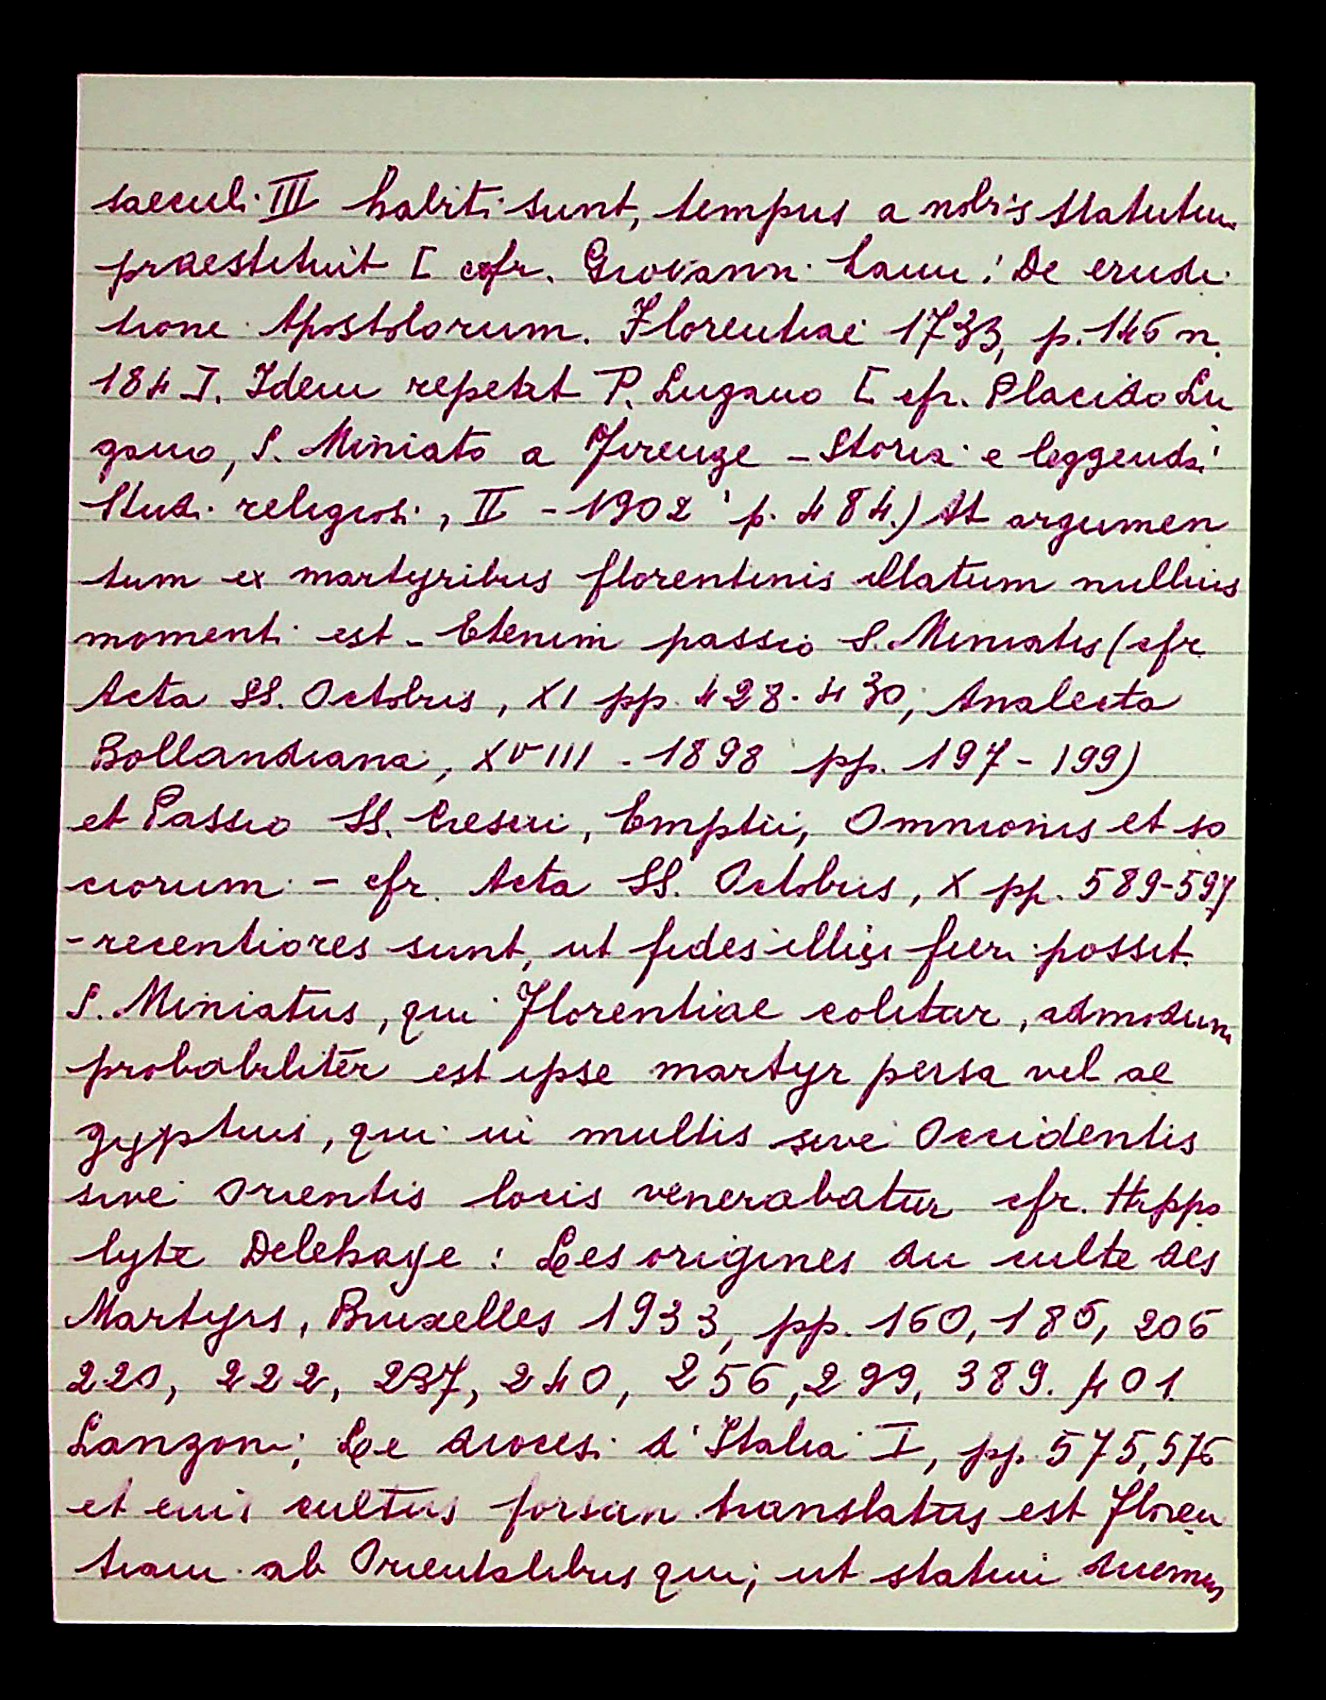 saeculi III habiti sunt, tempus a nobis statutum
praestituit [ cfr. Giovanni Lami: De erudi
tione Apostolorum. Florentiae 1733, p. 146 n.
184 ]. Idem repetit P. Lugano [ cfr. Placido Lu
gano, S. Miniato a Firenze - Storia e leggenda
Studi religiosi, II - 1902 p. 484.) At argumen
tum ex martyribus florentinis illatum nullius
momenti est - Etenim passio S. Miniatis (cfr.
Acta SS. Octobris, XI pp. 428-430; Analecta
Bollandiana, XVIII - 1898 pp. 197-199)
et Passio SS. Cresci, Emptii, Omnionis et so
ciorum - cfr. Acta SS. Octobris, X pp. 589-597
- recentiores sunt, ut fides illis fieri possit.
S. Miniatus, qui Florentiae colitur, admodum
probabiliter est ipse martyr persa vel ae
gyptius, qui in multis sive Occidentis
sive Orientis locis venerabatur cfr. Hippo
lyte Delehaye: Les origines du culte des
Martyrs, Bruxelles 1933, pp. 160, 185, 206
220, 222, 237, 240, 256, 299, 389. 401.
Lanzoni; Le diocesi d'Italia I, pp. 575, 576
et cuis cultus forsan translatus est Floren
tiam ab Orientalibus qui, ut statim dicemus